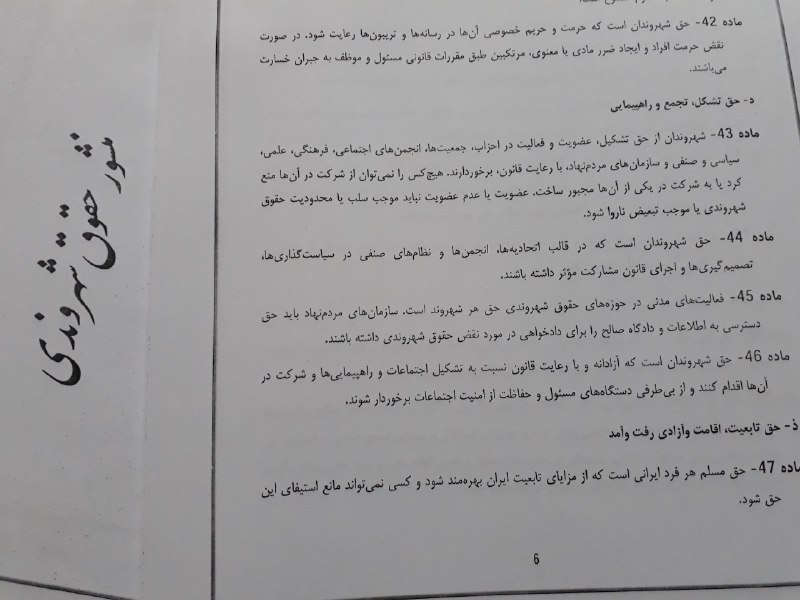 ماده 42- حق شهروندان است که حرمت و حریم خصوصی آن‌ها در رسانه‌ها و تریبون‌ها رعایت شود. در صورت
نقض حرمت افراد و ایجاد ضرر مادی یا معنوی، مرتکبین طبق مقررات قانونی مسئول و موظف به جبران خسارت
می‌باشند.
د- حق تشکل، تجمع و راهپیمایی
ماده 43- شهروندان از حق تشکیل، عضویت و فعالیت در احزاب، جمعیت‌ها، انجمن‌های اجتماعی، فرهنگی، علمی،
سیاسی و صنفی و سازمان‌های مردم‌نهاد، با رعایت قانون، برخوردارند. هیچ‌کس را نمی‌توان از شرکت در آن‌ها منع
کرد یا به شرکت در یکی از آن‌ها مجبور ساخت. عضویت یا عدم عضویت نباید موجب سلب یا محدودیت حقوق
شهروندی یا موجب تبعیض ناروا شود.
ماده 44- حق شهروندان است که در قالب اتحادیه‌ها، انجمن‌ها و نظام‌های صنفی در سیاست‌گذاری‌ها،
تصمیم‌گیری‌ها و اجرای قانون مشارکت مؤثر داشته باشند.
ماده 45- فعالیت‌های مدنی در حوزه‌های حقوق شهروندی حق هر شهروند است. سازمان‌های مردم‌نهاد باید حق
دسترسی به اطلاعات و دادگاه صالح را برای دادخواهی در مورد نقض حقوق شهروندی داشته باشند.
ماده 46- حق شهروندان است که آزادانه و با رعایت قانون نسبت به تشکیل اجتماعات و راهپیمایی‌ها و شرکت در
آن‌ها اقدام کنند و از بی‌طرفی دستگاه‌های مسئول و حفاظت از امنیت اجتماعات برخوردار شوند.
ذ- حق تابعیت، اقامت وآزادی رفت وآمد
ماده 47- حق مسلم هر فرد ایرانی است که از مزایای تابعیت ایران بهره‌مند شود و کسی نمی‌تواند مانع استیفای این
حق شود.
6
حقوق شهروندی